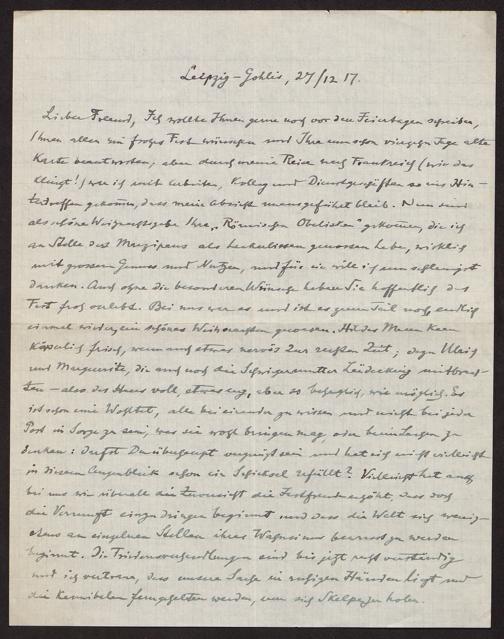 Leipzig-Gohlis, 27/12 17.
Lieber Freund, Ich wollte Ihnen gerne noch vor den Feiertagen schreiben,
Ihnen allen ein frohes Fest wünschen und Ihre nun schon vierzehn Tage alte
Karte beantworten; aber durch meine Reise nach Frankreich (wie das
klingt!) war ich mit Arbeiten, Kolleg und Dienstgeschäften so ins Hin-
tertreffen gekommen, dass meine Absicht unausgeführt blieb. Nun sind
als schöne Weihnachtsgabe Ihre "Römischen Obelisken" gekommen, die ich
an Stelle des Marzipans als genossen habe, wirklich
mit grossem Genuss und Nutzen, und für sie will ich nun schleunigst
danken. Auch ohne die besonderen Wünsche haben Sie hoffentlich das
Fest froh verlebt. Bei uns war es und ist es zum Teil noch endlich
einmal wieder ein schönes Weihnachten gewesen. Hildes Mann kam
körperlich frisch, wenn auch etwas nervös zur rechten Zeit; dazu Ulrich
und die auch noch die Schwiegermutter mitbrach-
ten – also das Haus voll, etwas eng, aber so behaglich, wie möglich. Es
ist schon eine Wohltat, alle beieinander zu wissen und nicht bei jeder
Post in Sorge zu sein, was sie wohl bringen mag, oder beim Lachen zu
denken: darfst Du überhaupt vergnügt sein und hat sich nicht vielleicht
in diesem Augenblick schon ein Schicksal erfüllt? Vielleicht hat auch
bei uns wie überall die Zuversicht die Festfreude erhöht, dass doch
die Vernunft einzudringen beginnt und dass die Welt sich wenig-
stens an einzelnen Stellen ihres Wahnsinns bewusst zu werden
beginnt. Die Friedensverhandlungen sind bis jetzt recht verständig
und ich vertraue, dass unsere Sache in ruhigen Händen liegt und
die Kannibalen ferngehalten werden, um sich Skalpe zu holen.